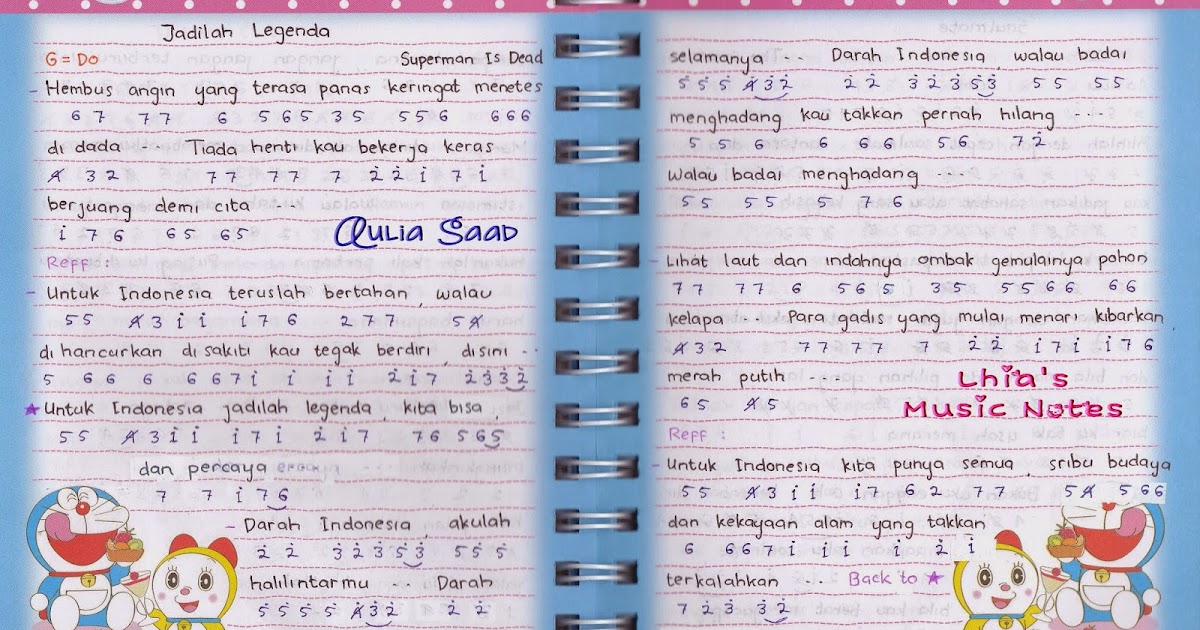 Jadilah Legenda
G = Do Superman Is Dead
- Hembus angin yang terasa panas keringat menetes
6 7 7 7 6 5 6 5 3 5 5 5 6 6 6 6
di dada ... Tiada henti kau bekerja keras
4̸ 3 2 7 7 7 7 7 2̇ 2̇ i 7 i
berjuang demi cita ...
i 7 6 6 5 6 5
Aulia Saad
Reff :
- Untuk Indonesia teruslah bertahan, walau
5 5 4̸ 3 i i i 7 6 2 7 7 5 4̸
di hancurkan di sakiti kau tegak berdiri, disini ...
5 6 6 6 6 6 7 i i i i 2̇ i 7 2̇ 3̇ 3̇ 2̇
★ Untuk Indonesia jadilah legenda, kita bisa,
5 5 4̸ 3 i i i 7 i 2̇ i 7 7 6 5 6 5
dan percaya
7 7 i 7 6
- Darah Indonesia, akulah
2̇ 2̇ 3̇ 2̇ 3̇ 5̇ 3̇ 5 5 5
halilintarmu ... Darah
5 5 5 5 4̸ 3̇ 2̇ 2̇ 2̇
selamanya .... Darah Indonesia, walau badai
5 5 5 4̸ 3̇ 2̇ 2̇ 2̇ 3̇ 2̇ 3̇ 5̇ 3̇ 5 5 5 5
menghadang kau takkan pernah hilang ....
5 5 6 6 6 6 5 6 7 2̇
walau badai menghadang
5 5 5 5 5 7 6
- Lihat laut dan indahnya ombak gemulainya pohon
7 7 7 7 6 5 6 5 3 5 5 5 6 6 6 6
kelapa ... Para gadis yang mulai menari kibarkan
4̸ 3 2 7 7 7 7 7 2̇ 2̇ i 7 i i 7 6
merah putih ....
6 5 4̸ 5
Lhia's
Music Notes
Reff :
- Untuk Indonesia kita punya semua sribu budaya
5 5 4̸ 3 i i i 7 6 2 7 7 5 4̸ 5 6 6
dan kekayaan alam yang takkan
6 6 6 7 i i i i 2̇ i
terkalahkan ... Back to ★
7 2̇ 3̇ 3̇ 2̇